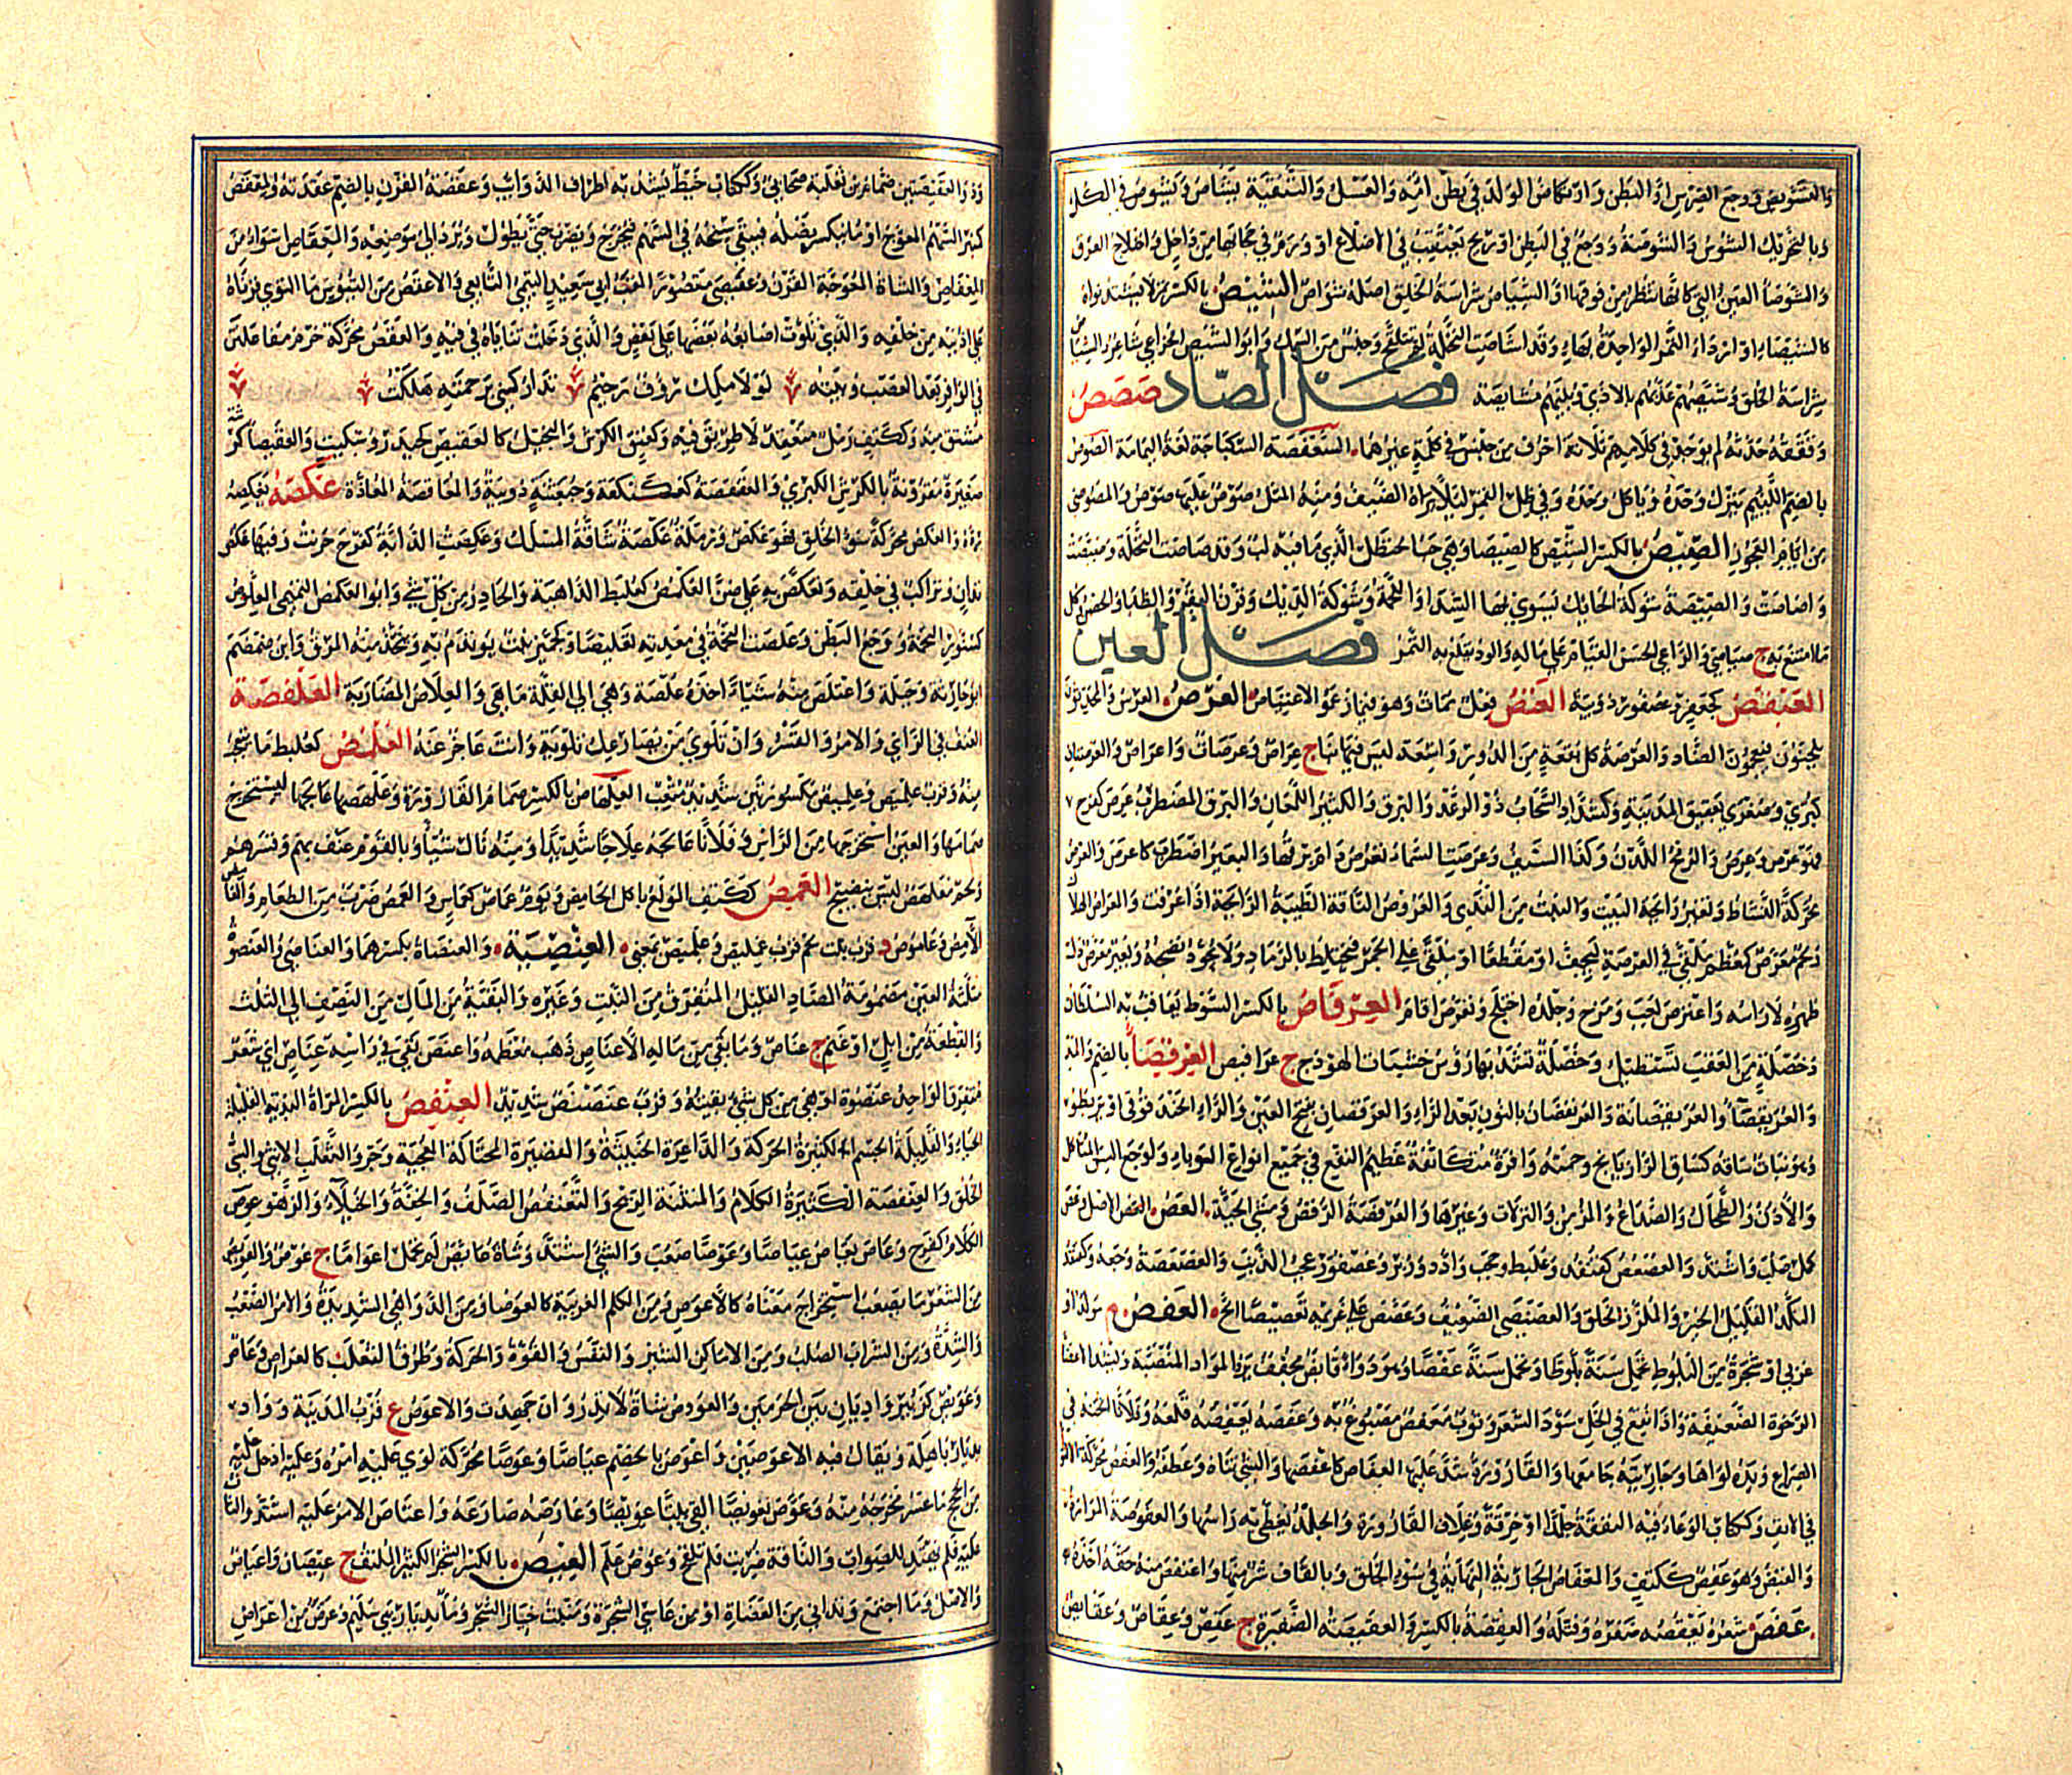 والتشويص ووجع الضرس أو البطن وارتكاض الولد في بطن أمه والغسل والتنقية يشاص ويشوص في الكل
وبالتحريك الشوس والشوصة وجع في البطن أو ريح تعتقب في الأضلاع أو ورم في حجابها من داخل واختلاج العرق
والشوصاء العين التي كأنها تنظر من فوقها أو الشياص شراسة الخلق أصله شواص الشيص بالكسر تمر لا يشتد نواه
كالشيصاء أو أردأ التمر الواحدة بهاء وقد أشاصت النخلة وجنس من السمك وأبو الشيص الخزاعي شاعر والشياص
شراسة الخلق وشيصهم عذبهم بالأذى وبينهم مشايصة فصل الصاد صصص
وققة حدثه لم يوجد في كلامهم ثلاثة أحرف من جنس في كلمة غيرهما الصعفصة السكباجة لغة اليمامة الصوص
بالضم اللئيم ينزل وحده ويأكل وحده وفي ظل القمر لئلا يراه الضيف ومنه المثل صوص عليها صوص والمصوصي
من أيام العجوز الصيص بالكسر الشيص كالصيصاء وهي حب الحنظل الذي ما فيه لب وقد صاصت النخلة وصيصت
وأصاصت والصيصة شوكة الحائك يسوي بها السداة واللحمة وشوكة الديك وقرن البقر والظباء والحصن وكل
ما امتنع به ج صياصي والراعي الحسن القيام على ماله والود يقلع به التمر فصل العين
العبقص كجعفر وعصفور دويبة العنص فعل ممات وهو فيما زعموا الاعتياص العرص العرس والمحدثون
يلحنون فيعجمون الضاد والعرصة كل بقعة من الدور واسعة ليس فيها بناء ج عراص وعرصات وأعراص والعرصتان
كبرى وصغرى بعقيق المدينة وكشداد السحاب ذو الرعد والبرق والكثير اللمعان والبرق المضطرب عرص كفرح
فهو عرص وعرص والرمح اللدن وكذا السيف وعرصت السماء تعرص دام برقها والبعير اضطرب كأعرص والعرص
محركة النشاط وتغير رائحة البيت والنبت من الندى والعروص الناقة الطيبة الرائحة إذا عرقت
ولحم معرص كمعظم ملقى في العرصة ليجف أو مقطع أو ملقى على الجمر فيختلط بالرماد ولا يجود نضجه وبعير معرص ذل
ظهره لا رأسه واعترص لعب ومرح وجلده اختلج وتعرص أقام العرقاص بالكسر السوط يعاقب به السلطان
وخصلة من العقب تستطيل وخصلة تشد بها رؤوس خشبات الهودج ج عرافيص العرقيصاء بالضم والمد
والعريقصاء والعريقصانة والعرنقصان بالنون بعد الراء والعرقصان بفتح العين والراء الحندقوقى أو بربطور
وهو نبات ساقه كساق الرازيانج وجمته وافرة متكاثفة عظيم النفع في جميع أنواع الوباء ولوجع السن المتآكل
والأذن والطحال والصداع المزمن والنزلات وغيرها والعرقصة الرقص ومشي الحية العص الأصل وعص
كمل صلب واشتد والعصعص كقنفذ وعلبط وحبب وأدد وزبر وعصفور عجب الذنب والعصعصة وجعه وكقنفذ
النكد القليل الخير والملزز الخلق والعصنصى الضعيف وعصص على غريمه تعصيصا ألح العفص م مولد أو
عربي أو شجرة من البلوط تحمل سنة بلوطا وتحمل سنة عفصا وهو دواء قابض مجفف يرد المواد المنصبة ويشد الأعضاء
الرخوة الضعيفة وإذا نقع في الخل سود الشعر وثوب معفص مصبوغ به وعفصه يعفصه قلعه وفلانا أثخنه في
الصراع ويده لواها وجاريته جامعها والقارورة شد عليها العفاص كأعفصها والشيء ثناه وعطفه والعفص محركة الالتواء
في الأنف وككتاب الوعاء فيه النفقة جلدا أو خرقة وغلاف القارورة والجلد يغطى به رأسها والعفوصة المرارة
والقبض وهو عفص ككتف والمعفاص الجارية النهاية في سوء الخلق وبالقاف شر منها واعتفص منه حقه أخذه
عقص شعره يعقصه ضفره وفتله والعقصة بالكسر والعقيصة الضفيرة ج عقص وعقاص وعقائص
وذو العقيصتين ضمام بن ثعلبة صحابي وككتاب خيط يشد به أطراف الذوائب وعقصة القرن بالضم عقدته والمعقص
كمنبر السهم المعوج أو ما ينكسر نصله فيبقى سنخه في السهم فيخرج ويضرب حتى يطول ويرد إلى موضعه والمعقاص أسوأ من
المعفاص والشاة المعوجة القرن وعقيصى مقصورا لقب أبي سعيد التيمي التابعي والأعقص من التيوس ما التوى قرناه
على أذنيه من خلفه والذي تلوت أصابعه بعضها على بعض والذي دخلت ثناياه في فيه والعقص محركة خرم مفاعلتن
في الوافر بعد العصب وبيته لولا مليك رؤوف رحيم تداركني برحمته هلكت
مشتق منه وككتف رمل منعقد لا طريق فيه وعنق الكرش والبخيل كالعقيص كحيدر وسكيت والعقيصاء كرشة
صغيرة مقرونة بالكرش الكبرى والعقعصة كعكنكعة وحبعثنة دويبة والمعاقصة المعازة عكصه يعكصه
رده والعكص محركة سوء الخلق فهو عكص ورملة عكصة شاقة المسلك وعكصت الدابة كفرح حرنت وفيها عكص
تدان وتراكب في خلقه وتعكص به علي ضن العكمص كعلبط الداهية والحادر من كل شيء وأبو العكمص التميمي العلوص
كسنور التخمة ووجع البطن وعلصت التخمة في معدته تعليصا وكجميز نبت يؤتدم به ويتخذ منه المرق وابن ضمضم
أبو حارثة وجبلة واعتلص منه شيئا أخذه علصة وهي إلى القلة ما هي والعلاص المضاربة العلفصة
العنف في الرأي والأمر والقسر وأن تلوي من يصارعك تلوية وأنت عاجز عنه العلمص كعلبط ما يتعجب
منه وقرب علميص وعلميص مكسورتين شديد متعب العلهاص بالكسر صمام القارورة وعلهصها عالجها ليستخرج
صمامها والعين استخرجها من الرأس وفلانا عالجه علاجا شديدا ومنه نال شيئا وبالقوم عنف بهم وقسرهم
ولحم معلهص ليس بنضيج العمص ككتف المولع بأكل الحامض ويوم عماص كعماس والعمص ضرب من الطعام
الآمص وعاموص د قرب بيت لحم قرب عمليص وعلميص بمعنى العنصية والعنصاة بكسرهما والعناصي والعنصوة
مثلثة العين مضمومة الصاد القليل المتفرق من النبت وغيره والبقية من المال من النصف إلى الثلث
والقطعة من إبل أو غنم ج عناص وما بقي من ماله إلا عناص ذهب معظمه وأعنص بقي في رأسه عناص أي شعر
متفرق الواحد عنصوة أو هي من كل شيء بقيته وقرب عنصنص شديد العنفص بالكسر المرأة البذية القليلة
الحياء والقليلة الجسم الكثيرة الحركة والداعرة الخبيثة والقصيرة المختالة المعجبة وجرو الثعلب الأنثى والسيئ
الخلق والعنفصة الكثيرة الكلام والمنتنة الريح والتعنفص الصلف والخفة والخيلاء والزهو عوص
الكلام كفرح وعاص يعاص عياصا وعوصا صعب والشيء اشتد وشاة عائص لم تحمل أعواما ج عوص والعويص
من الشعر ما يصعب استخراج معناه كالأعوص ومن الكلم الغريبة كالعوصاء ومن الدواهي الشديدة والأمر الصعب
والشدة ومن التراب الصلب ومن الأماكن الشئز والنفس والقوة والحركة وطرق الثعلب كالعراص وعامر
وعويص كزبير واديان بين الحرمين والعووص شاة لا تدر وإن جهدت والأعوص ع قرب المدينة وواد
بديار باهلة ويقال فيه الأعوصين وأعوص بالخصم عياصا وعوصا محركة لوى عليه أمره وعليه أدخل عليه
من الحجج ما عسر مخرجه منه وعوص تعويصا ألقى بيتا عويصا وعاوصه صارعه واعتاص الأمر عليه اشتد والتاث
عليه فلم يهتد للصواب والناقة ضربت فلم تلقح وعوص علم العيص بالكسر الشجر الكثير الملتف ج عيصان وأعياص
والأصل وما اجتمع وتدانى من العضاه أو من عاسي الشجرة ومنبت خيار الشجر وماء بديار بني سليم وعرض من أعراض